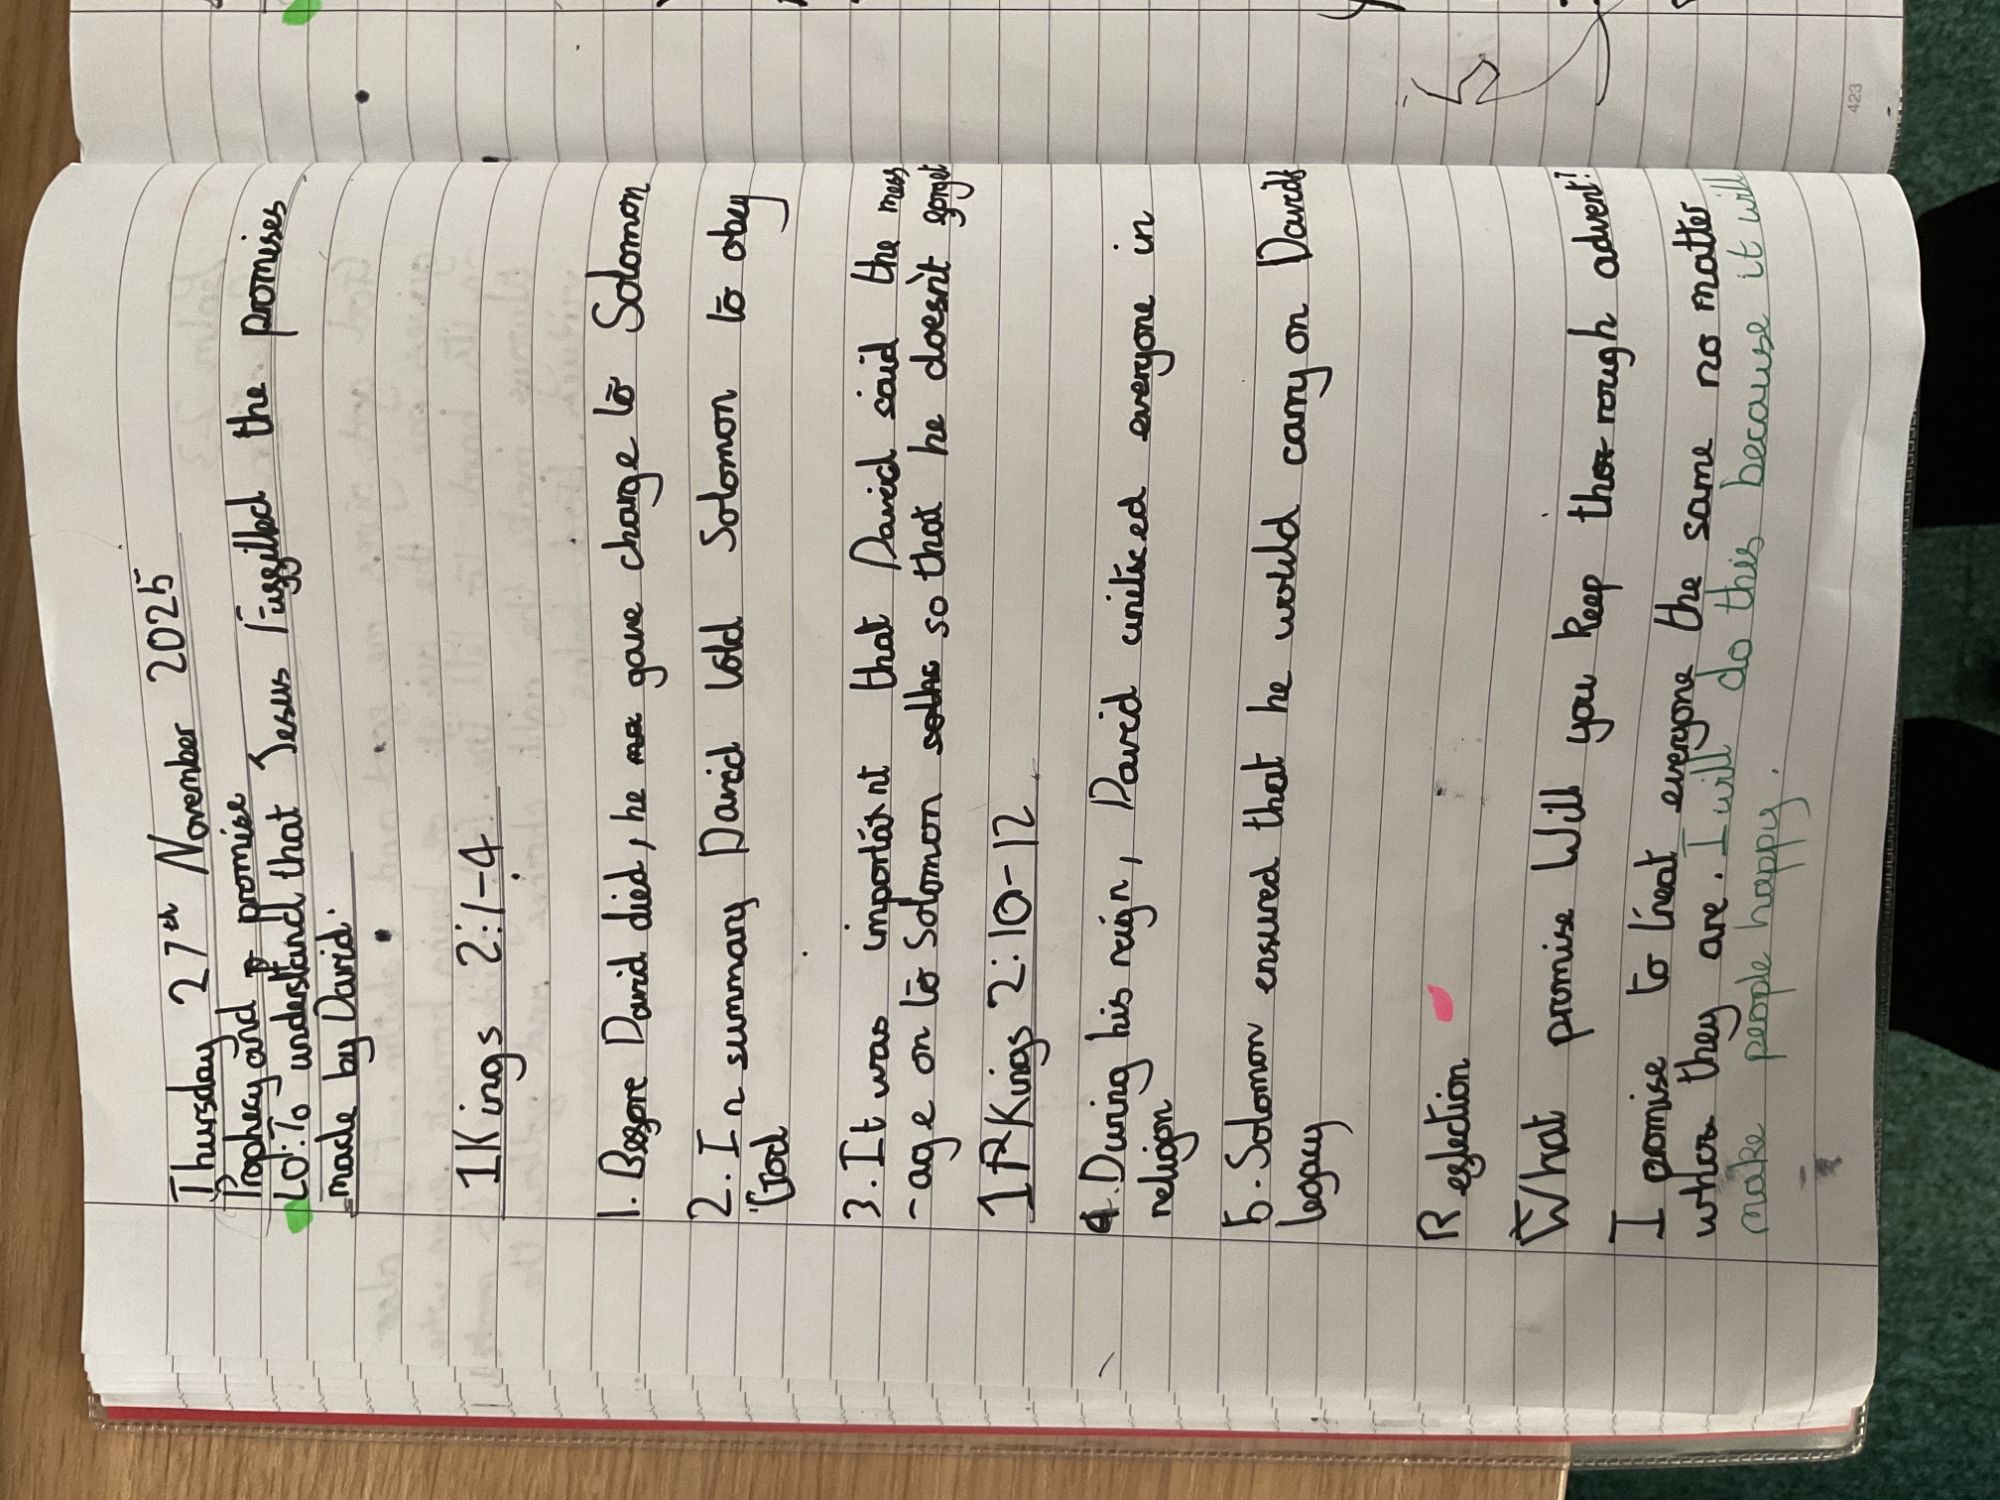 Thursday 27th November 2025
Prophecy and promise
Lo: To understand that Jesus Fulfilled the promises
made by David.
1 Kings 2:1-4
1. Before David died, he gave charge to Solomon
2. In summary David told Solomon to obey
God
3. It was important that David said the mess
-age on to Solomon so that he doesn't forget
1 Kings 2:10-12
4. During his reign, David united everyone in
religion
5. Solomon ensured that he would carry on Davids
legacy
Reflection
What promise will you keep through advent?
I promise to treat everyone the same no matter
who they are. I will do this because it will
make people happy.
423